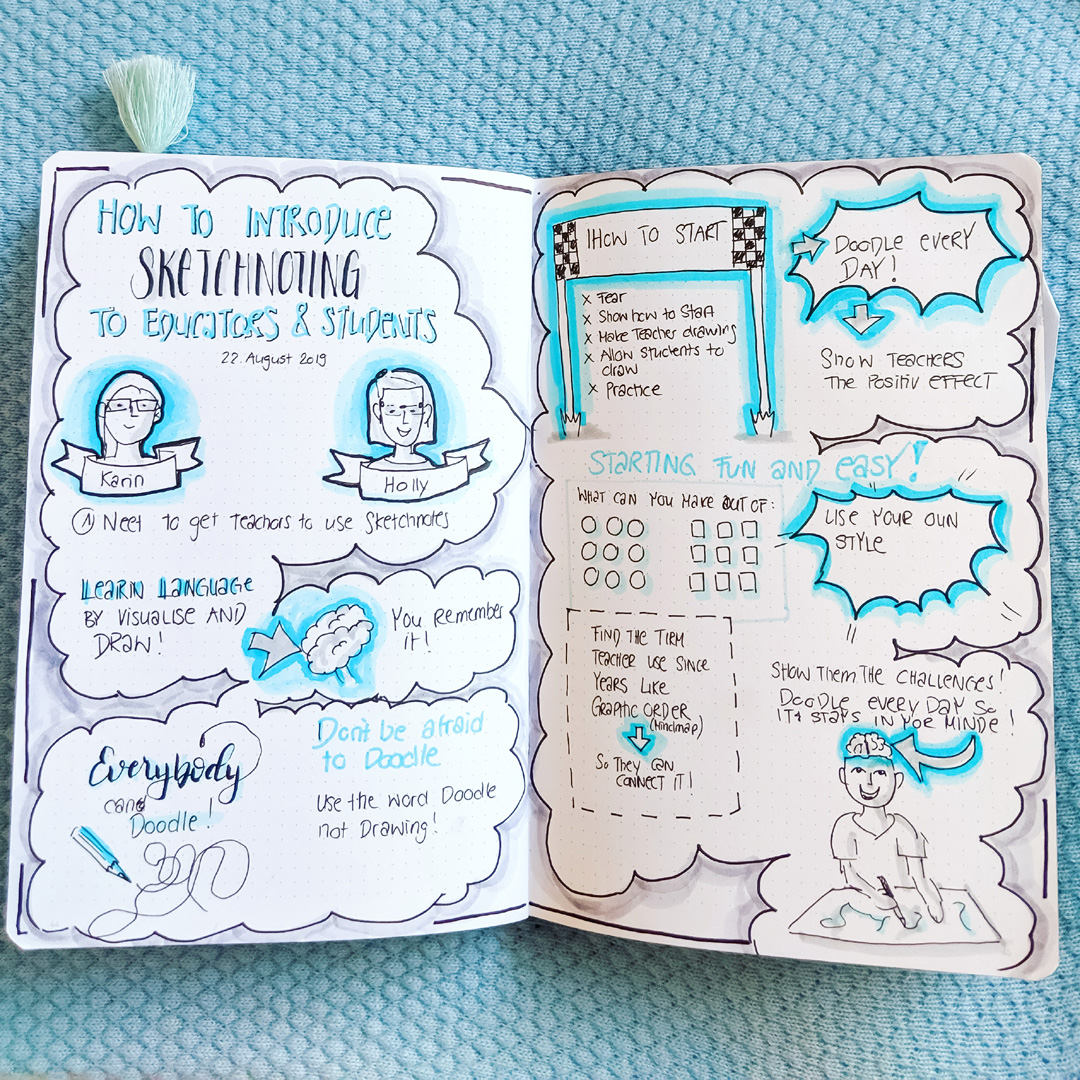 HOW TO INTRODUCE
SKETCHNOTING
TO EDUCATORS & STUDENTS
22. August 2019
Karin
Holly
Neet to get teachers to use Sketchnotes
LEARN LANGUAGE
BY VISUALISE AND
DRAW!
You Remember
it!
Everybody
can
Doodle!
Don't be afraid
to Doodle
Use the word Doodle
not Drawing!
HOW TO START
x Fear
x Show how to Start
x Make Teacher drawing
x Allow students to
draw
x Practice
DOODLE EVERY
DAY!
SHOW TEACHERS
THE POSITIV EFFECT
STARTING FUN AND EASY!
WHAT CAN YOU MAKE OUT OF:
USE YOUR OWN
STYLE
FIND THE TIRM
TEACHER USE SINCE
YEARS LIKE
GRAPHIC ORDER
(Mindmap)
SO THEY CAN
CONNECT IT!
SHOW THEM THE CHALLENGES!
DOODLE EVERY DAY SO
IT STAYS IN YOR MINDE!